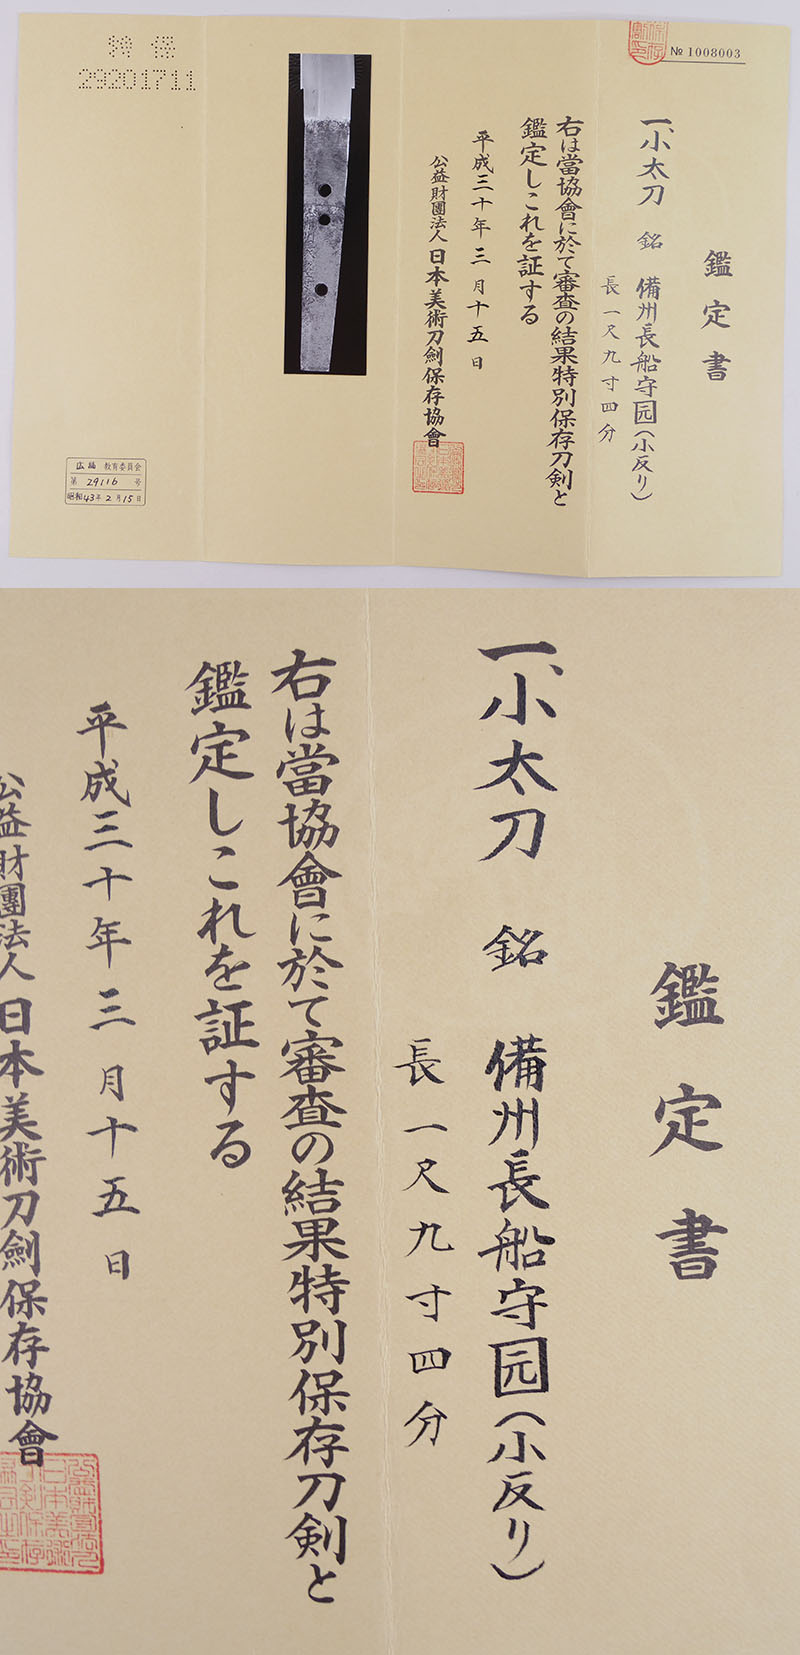 № 1008003
鑑定書
一、小太刀 銘 備州長船守元(小反り)
長一尺九寸四分
右は當協會に於て審査の結果特別保存刀剣と
鑑定しこれを証する
平成三十年三月十五日
公益財團法人日本美術刀劍保存協會
特保
29201711
広島 教育委員会
第 29116 号
昭和43年2月15日
鑑定書
一、小太刀 銘 備州長船守元(小反り)
長一尺九寸四分
右は當協會に於て審査の結果特別保存刀剣と
鑑定しこれを証する
平成三十年三月十五日
公益財團法人日本美術刀劍保存協會